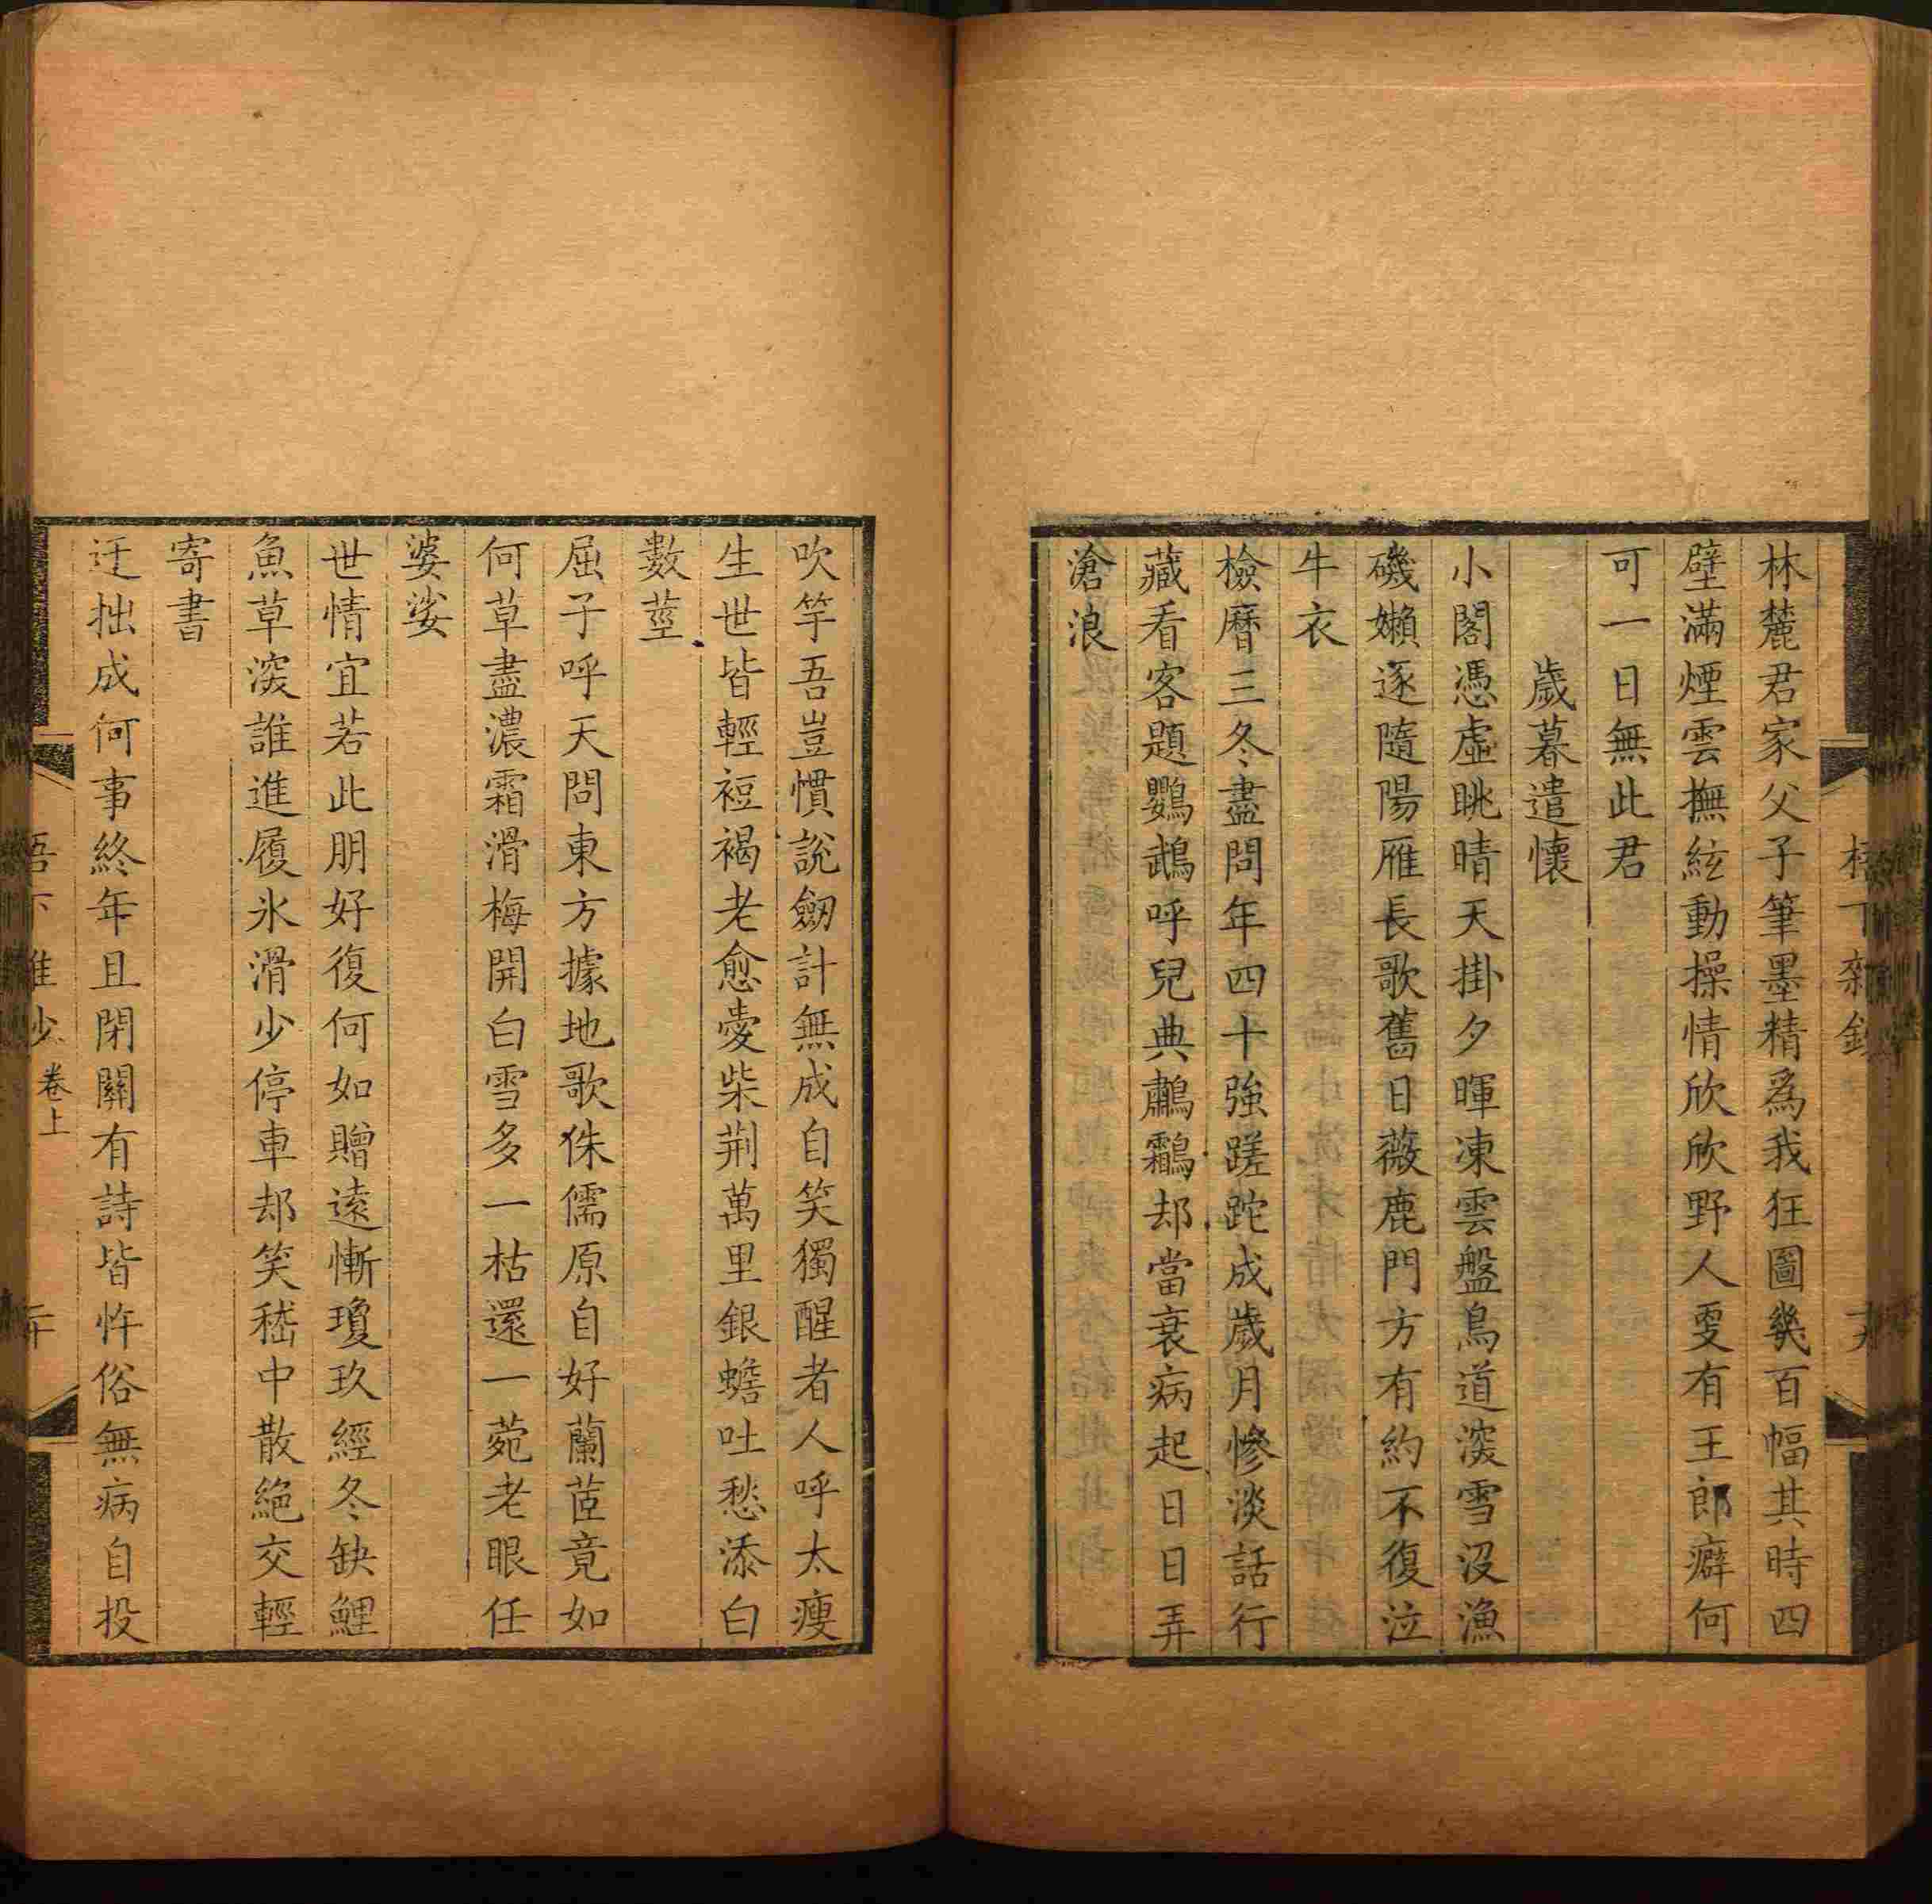 林麓君家父子筆墨精爲我狂圖幾百幅其時四
壁滿煙雲撫絃動操情欣欣野人雯有王郎癖何
可一日無此君
歲暮遣懷
小閣憑虛眺晴天掛夕暉凍雲盤鳥道深雪沒漁
磯嬾逐隨陽雁長歌舊日薇鹿門方有約不復泣
牛衣
檢曆三冬盡問年四十強蹉跎成歲月慘淡話行
藏看客題鸚鵡呼兒典鷫鸘却當衰病起日日弄
滄浪
吹竽吾豈慣說劒計無成自笑獨醒者人呼太瘦
生世皆輕裋褐老愈憂柴荆萬里銀蟾吐愁添白
數莖
屈子呼天問東方據地歌侏儒原自好蘭茝竟如
何草盡濃霜滑梅開白雪多一枯還一菀老眼任
婆娑
世情宜若此朋好復何如贈遠慚瓊玖經冬缺鯉
魚草深誰進履氷滑少停車却笑嵇中散絕交輕
寄書
迂拙成何事終年且閉關有詩皆忤俗無病自投
卷上